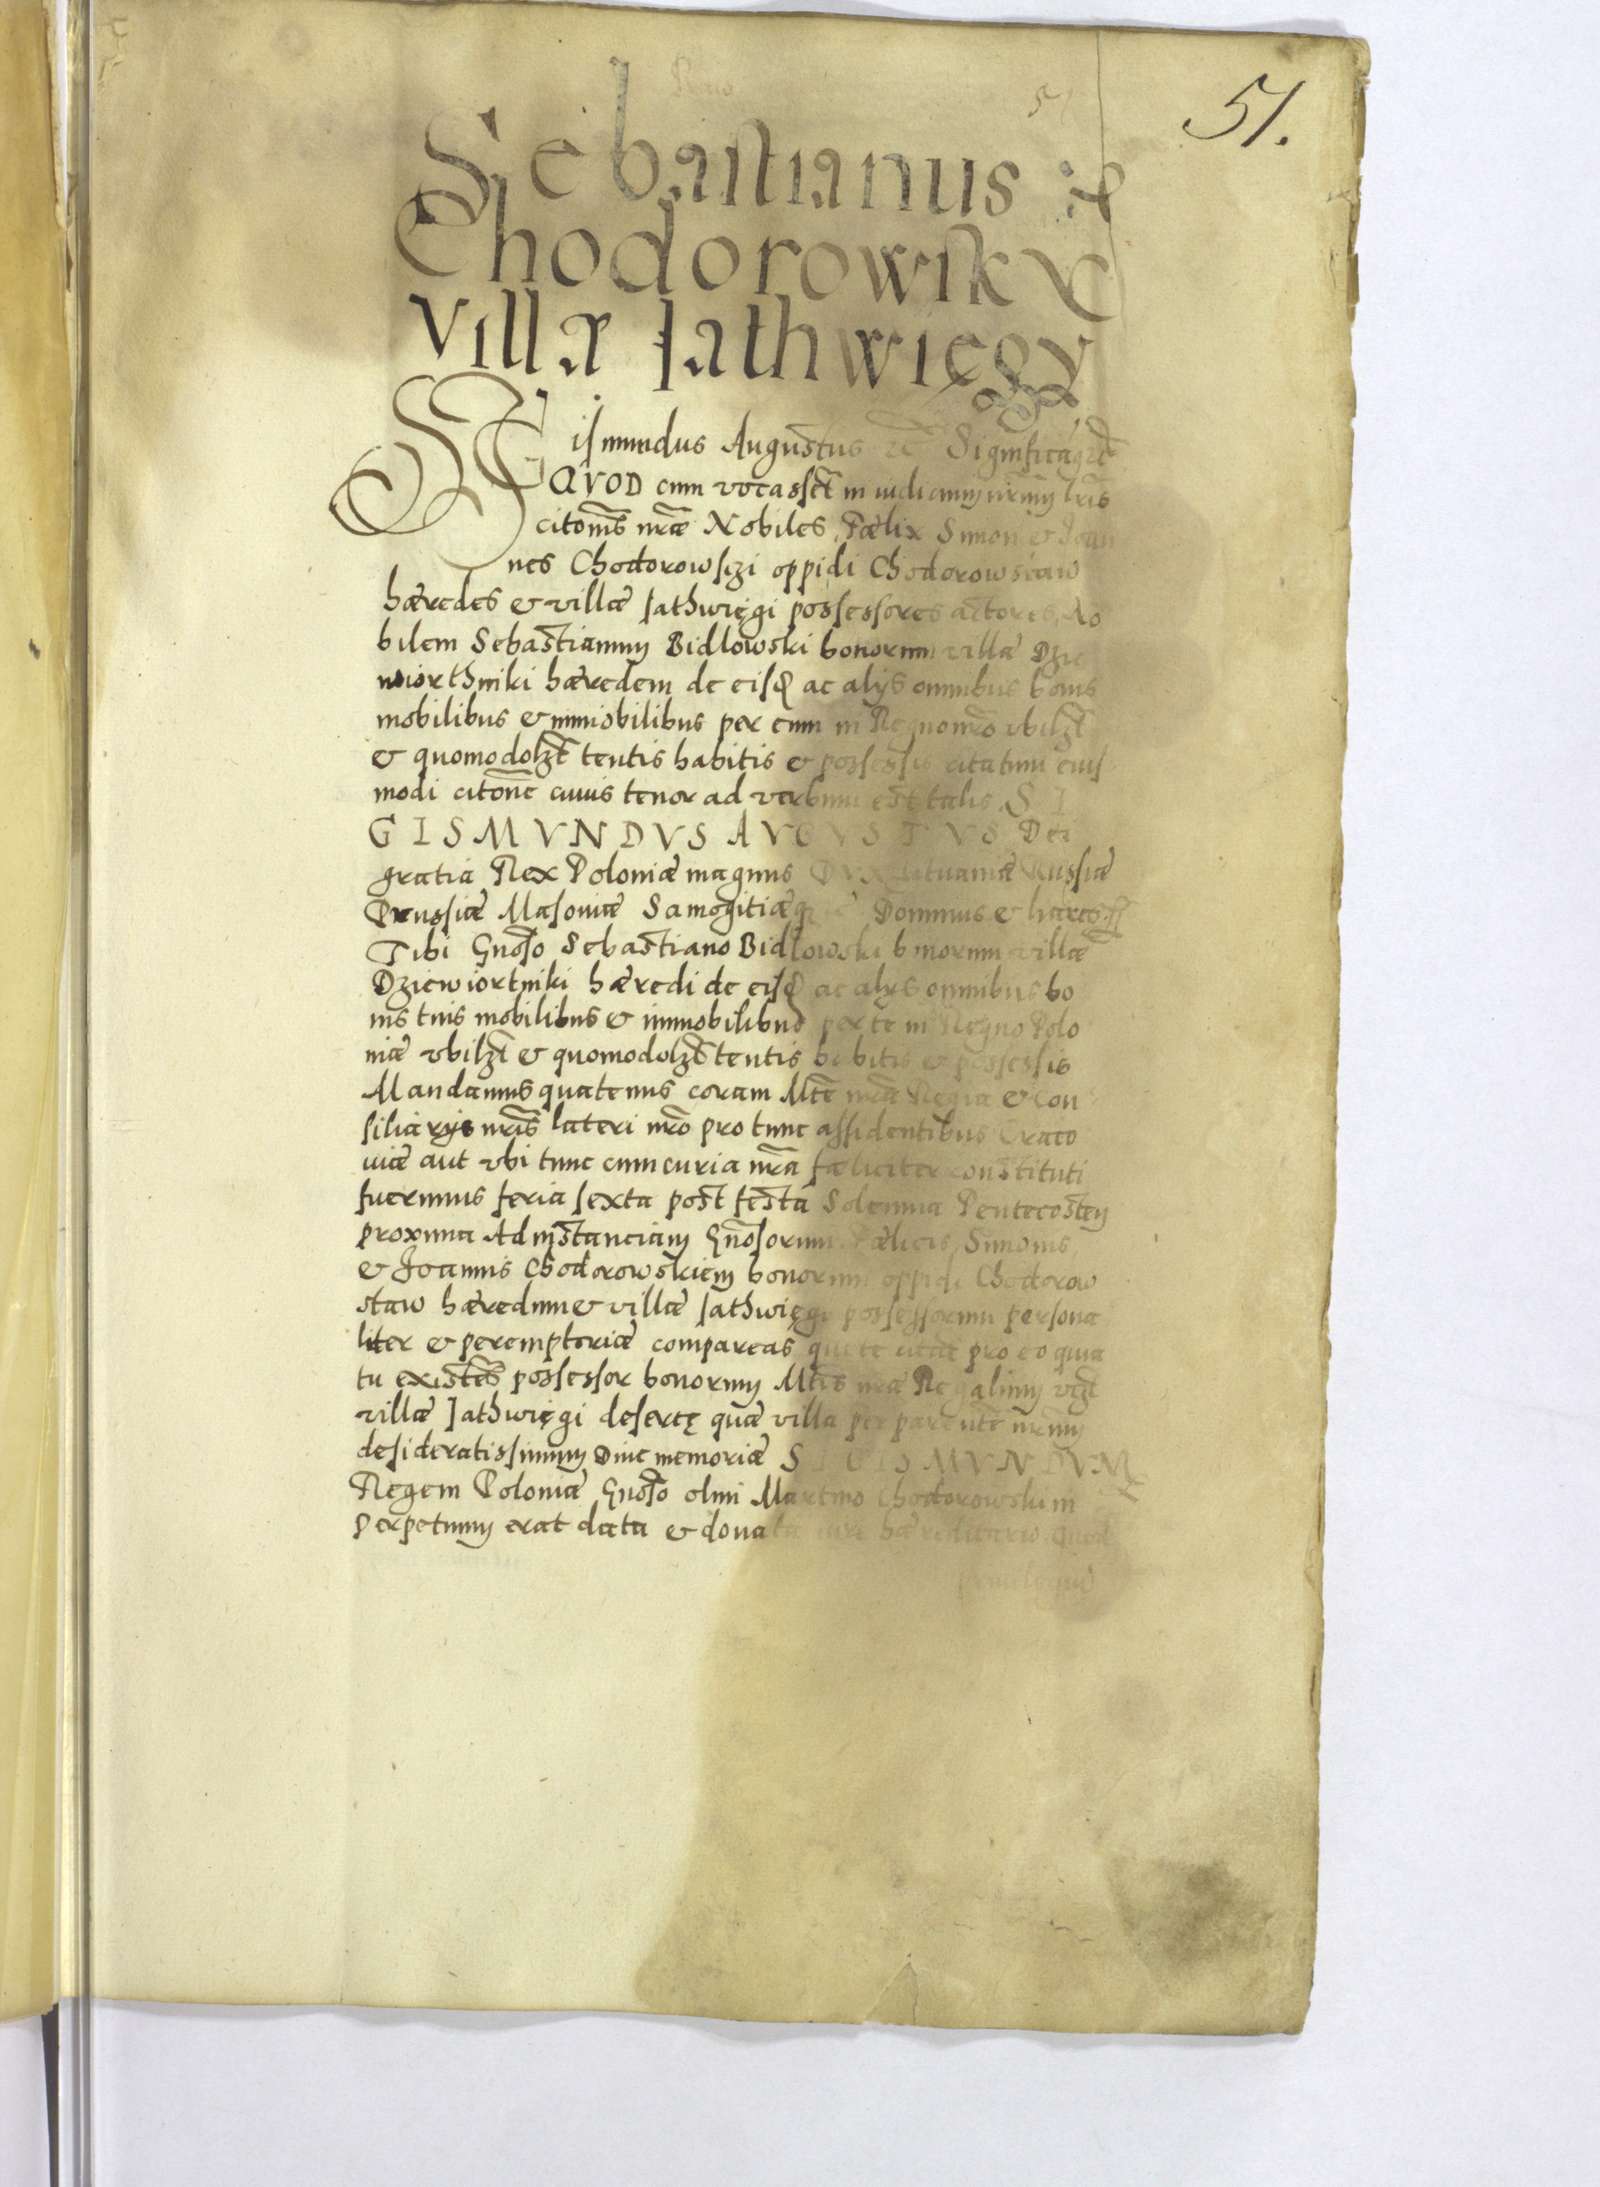 51.
Sebastianus &
Chodorowsky
Villæ Jathwięgy
Sigismundus Augustus
QVOD cum vocassēt in iudicium nrm lris
citonis nrae Nobiles Fælix Simon et Joan
nes Chodorowsczi oppidi Chodorowstaw
hæredes & villæ Jathwięgi possessores actores No
bilem Sebastianum Bidlowski bonorum villæ Dzie
wiorthniki hæredem de eisd ac alijs omnibus bonis
mobilibus & immobilibus per eum in Regno nro vbilzt
& quomodolzt tentis habitis & possessis citatum eius
modi citone cuius tenor ad verbum est talis S I
GISMVNDVS AVGVSTVS Dei
gratia Rex Poloniæ magnus Dux Lituaniæ Russiæ
Prussiæ Masoviæ Samogitiæq Dominus & hæres
Tibi Gnoso Sebastiano Bidlowski bonorum villæ
Dziewiortniki hæredi de eisd ac alijs omnibus bo
nis tuis mobilibus & immobilibus per te in Regno Polo
niæ vbilzt & quomodolzt tentis habitis & possessis
Mandamus quatenus coram Mte nra Regia & Con
siliarijs nris lateri nro pro tunc assidentibus Craco
uiæ aut vbi tunc cum curia nra fæliciter constituti
fuerimus feria sexta post festa Solemnia Pentecosten
proxima Ad instanciam Gnosorum Fælicis Simonis
& Joannis Chodorowskiem bonorum oppidi Chodorow
staw hæredum & villæ Jathwięgi possessorum persona
liter & peremptoriæ compareas qui te citat pro eo quia
tu existens possessor bonorum Mtis nræ Regalium vzt
villæ Jathwięgi desertę quæ villa per parentē nrmm
desideratissimum Diue memoriæ SIGISMVNDVM
Regem Poloniæ Gnoso olim Martino Chodorowski in
Perpetuum erat data & donata iure hæreditario quod